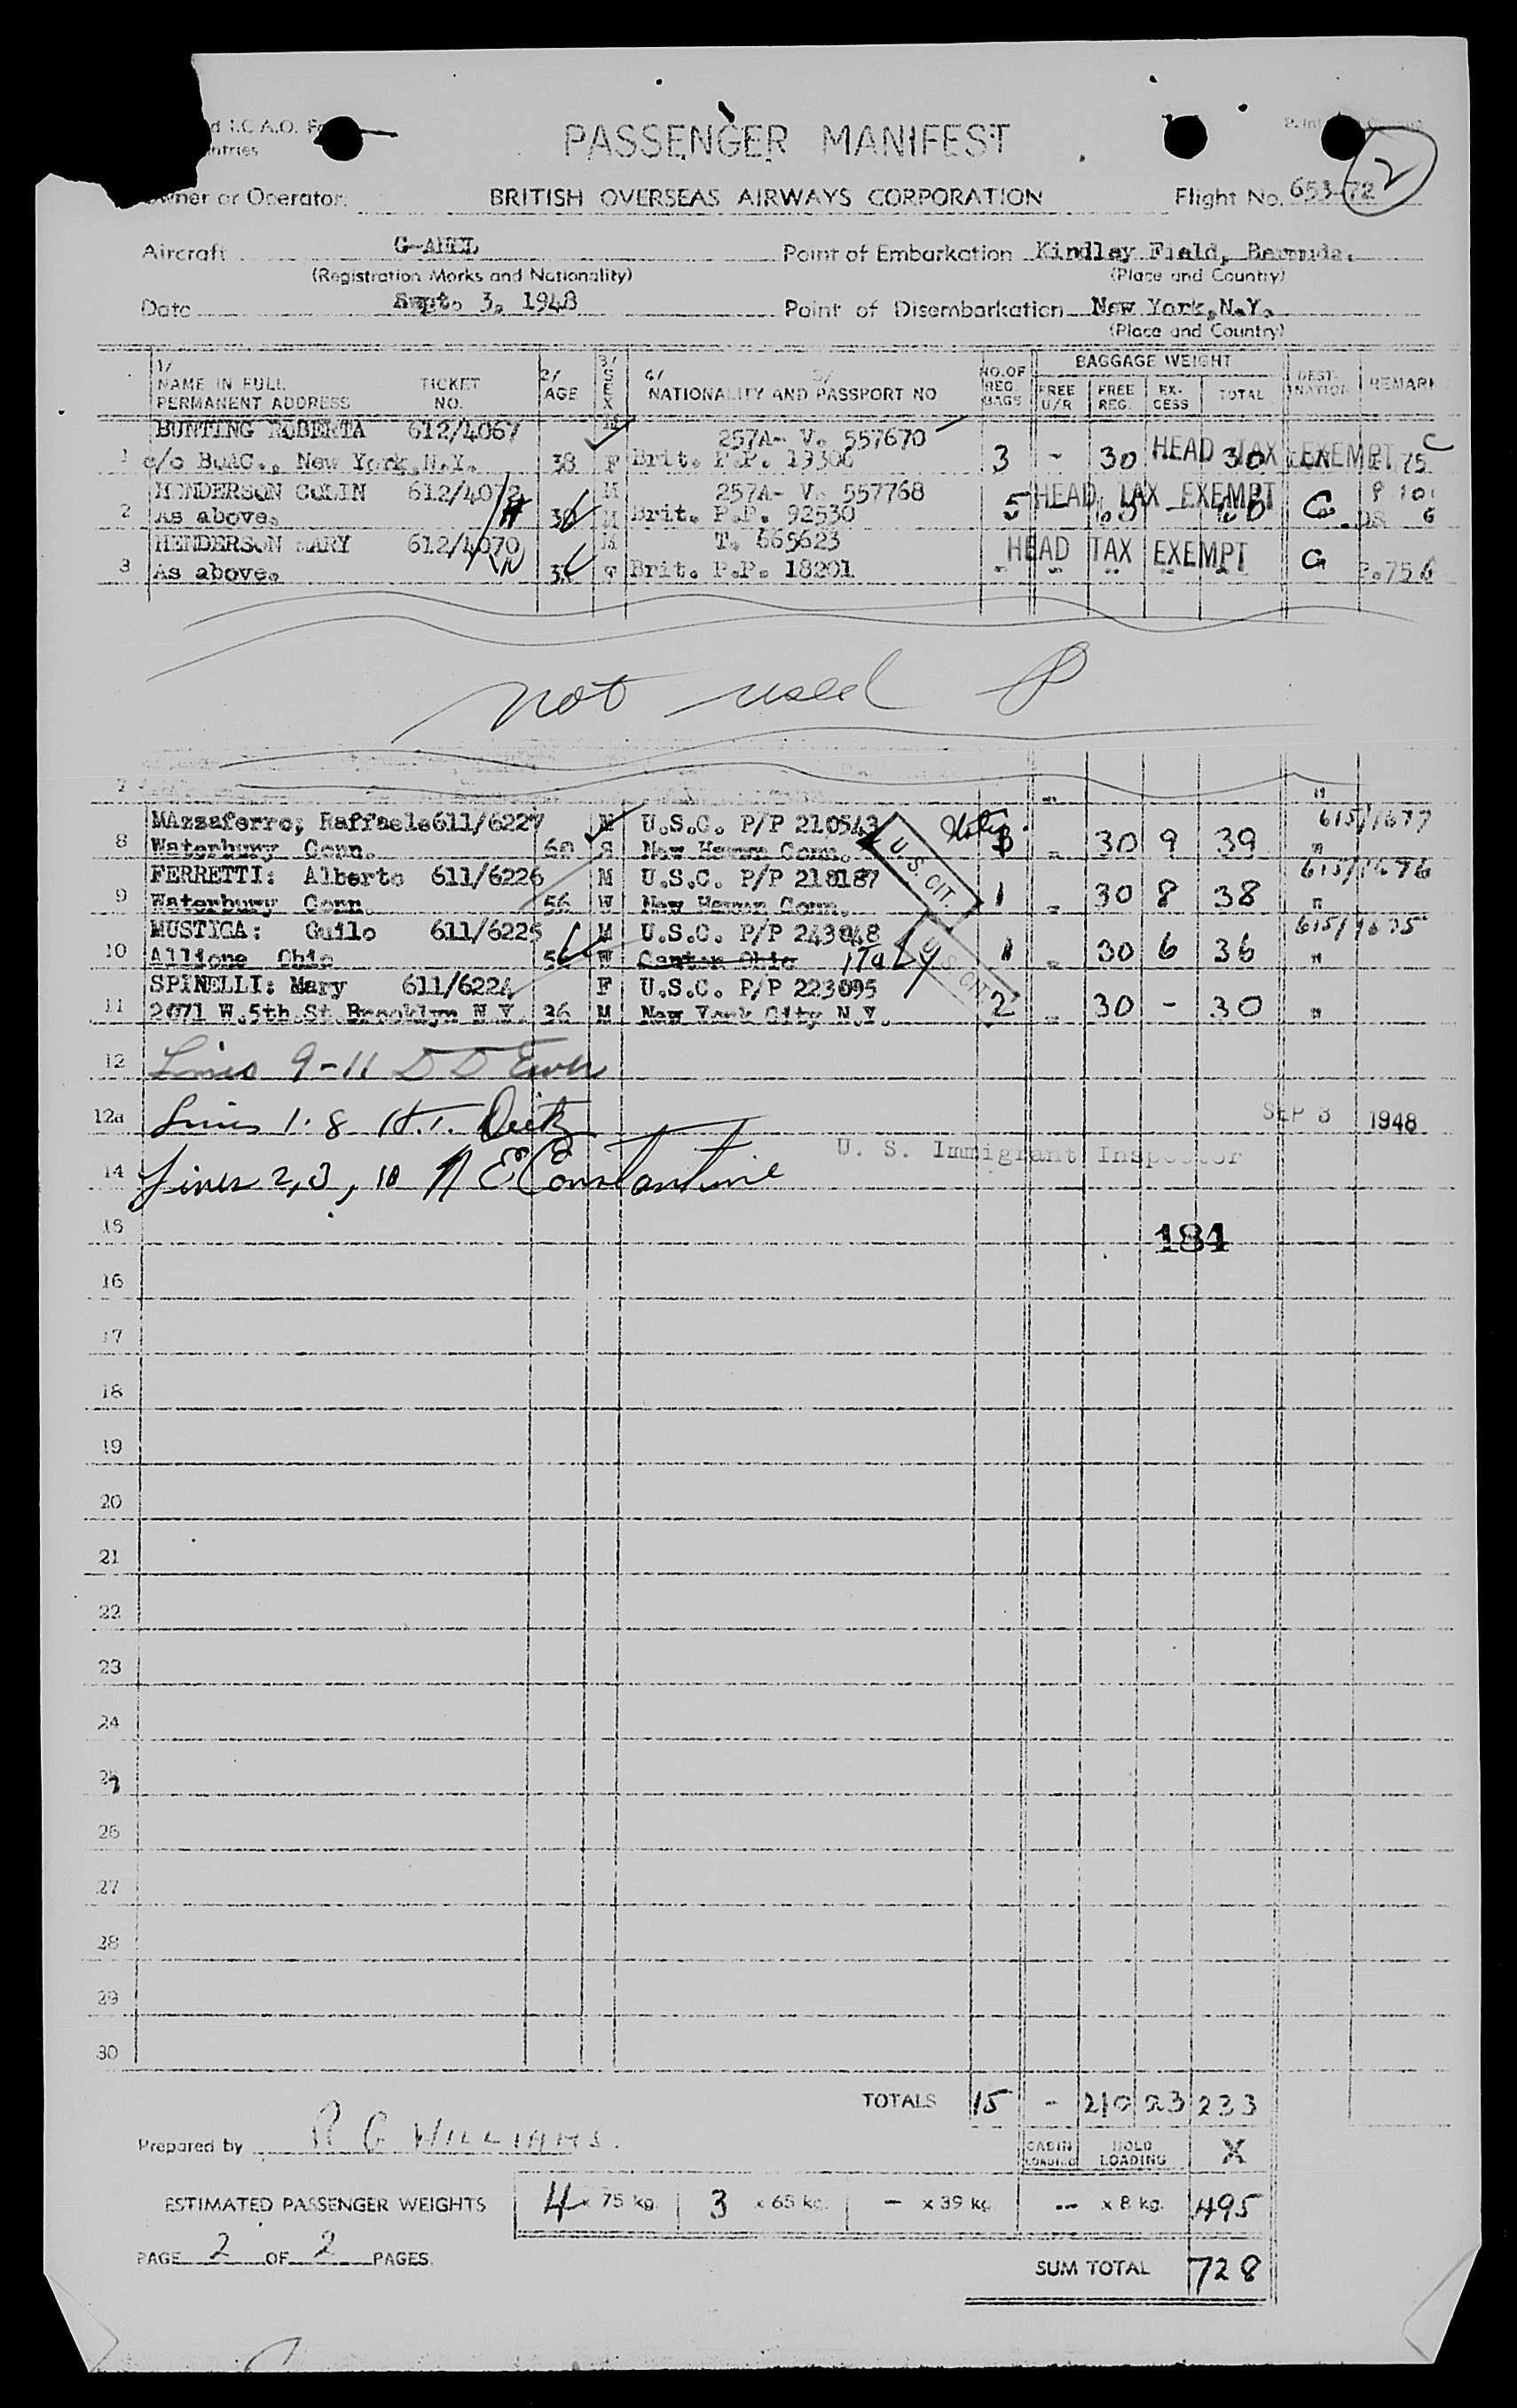 d I.C.A.O.
ntries
PASSENGER MANIFEST
2
Owner or Operator: BRITISH OVERSEAS AIRWAYS CORPORATION Flight No. 653-72
Aircraft Point of Embarkation Kindley Field, Bermuda.
(Registration Marks and Nationality) (Place and Country)
Date Sept. 3, 1948 Point of Disembarkation New York, N.Y.
(Place and Country)
1/ NAME IN FULL PERMANENT ADDRESS TICKET NO. 2/ AGE 3/ SEX 4/ 5/ NATIONALITY AND PASSPORT NO NO. OF REG. BAGS BAGGAGE WEIGHT FREE U/R FREE REG. EX-CESS TOTAL DEST-INATION REMARK
BUNTING ROBERTA 612/4067 M 257A- V. 557670
1 c/o BOAC., New York, N.Y. 38 F Brit. P.P. 19306 3 - 30 HEAD TAX EXEMPT 30
HENDERSON COLIN 612/4072 M 257A- V. 557768
2 As above. M Brit. P.P. 92530 5 HEAD TAX EXEMPT G
HENDERSON MARY 612/4070 M T. 665623
3 As above. F Brit. P.P. 18201 HEAD TAX EXEMPT G
not used
7 "
MAzzaferro, Raffaele 611/6227 M U.S.C. P/P 210543 615/1677
8 Waterbury Conn. 60 S New Haven Conn. U.S. CIT. 3 - 30 9 39 "
FERRETTI: Alberto 611/6226 M U.S.C. P/P 218187 615/1676
9 Waterbury Conn. 56 W New Haven Conn. 1 - 30 8 38 "
MUSTICA: Guilo 611/6225 M U.S.C. P/P 243048 615/1675
10 Allione Ohio W Canton Ohio ITaLy U.S. CIT. 1 - 30 6 36 "
SPINELLI: Mary 611/6224 F U.S.C. P/P 223095
11 2071 W.5th.St.Brooklyn N.Y. 36 M New York City N.Y. 2 - 30 - 30 "
12 Lines 9-11
12a Lines 1-8 H.T. Dietz SEP 3 1948
U. S. Immigrant Inspector
14 Lines 2,3, 10 N E Constantine
15 184
16
17
18
19
20
21
22
23
24
25
26
27
28
29
30
TOTALS 15 - 210 23 233
Prepared by R G WILLIAMS. CABIN LOADING HOLD LOADING X
ESTIMATED PASSENGER WEIGHTS 4 x 75 kg. 3 x 65 kg. - x 39 kg. -- x 8 kg. 495
PAGE 2 OF 2 PAGES.
SUM TOTAL 728